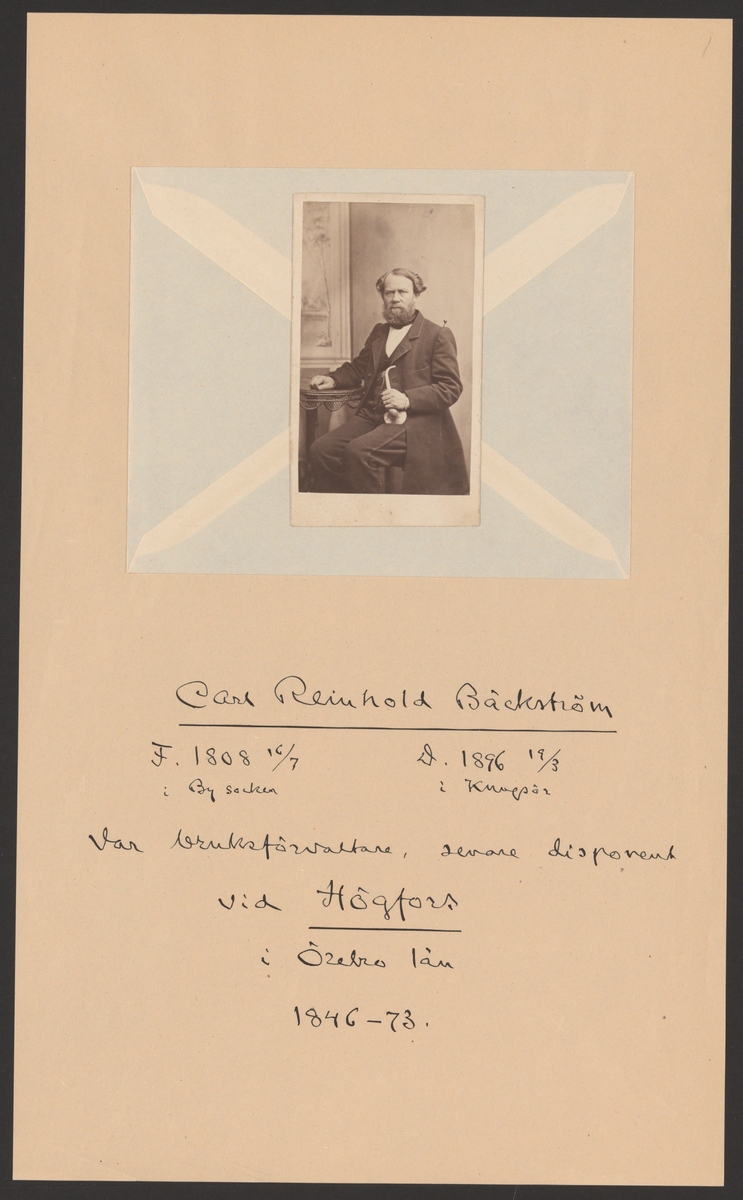 Carl Reinhold Bäckström
F. 1808 16/7 D. 1896 19/3
i By socken i Kungsör
Var bruksförvaltare, senare disponent
vid Högfors
i Örebro län
1846-73.